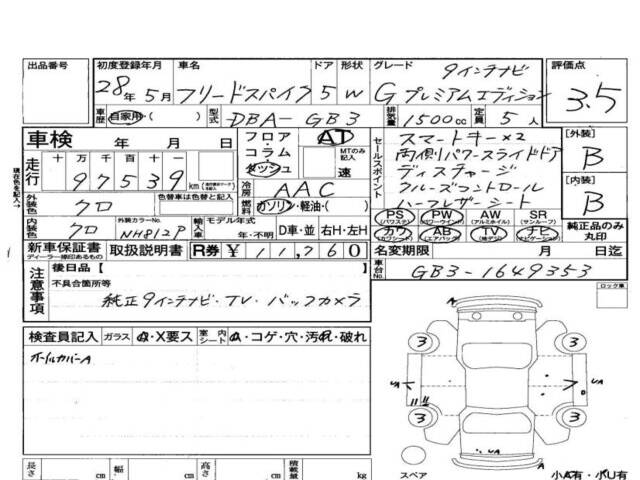 出品番号
初度登録年月 車名 ドア 形状 グレード 9インチナビ 評価点
28年 5月 フリードスパイク 5 W Gプレミアムエディション 3.5
車歴 自家用・( ) 型式 DBA-GB3 排気量 1500cc 定員 5人
車検 年 月 日
フロア・コラム・ダッシュ
AT
MTのみ記入
速
走行 十 万 千 百 十 一
97539 km
現在色を記入→
外装色 クロ 色替車は色替え前と記入
冷房 AAC
燃料 ガソリン・軽油・( )
内装色 クロ 外装カラーNo. NH812P 輸入車 モデル年式 年・不明 D車・並 右H・左H
セールスポイント
スマートキー×2
両側パワースライドドア
ディスチャージ
クルーズコントロール
ハーフレザーシート
[外装]
B
[内装]
B
PS (パワステ) PW (パワーウインド) AW (アルミホイル) SR (サンルーフ)
カワ (カワシート) AB (エアバック) TV (地デジ) ナビ (ナビゲーション)
純正品のみ丸印
新車保証書 ディーラー捺印あるもの 取扱説明書 R券 ¥11,760
名変期限 月 日迄
車台No. GB3-1649353
注意事項 後日品【
不具合箇所等
純正9インチナビ・TV・バックカメラ
ロック車
検査員記入 ガラス A・X要ス 室内シート A・コゲ・穴・汚れ・破れ
ホイルカバーA
A
3 3
UA UA
3 3
UA
スペア
小A有・小U有
長さ cm 幅 cm 高さ cm 積載量 kg